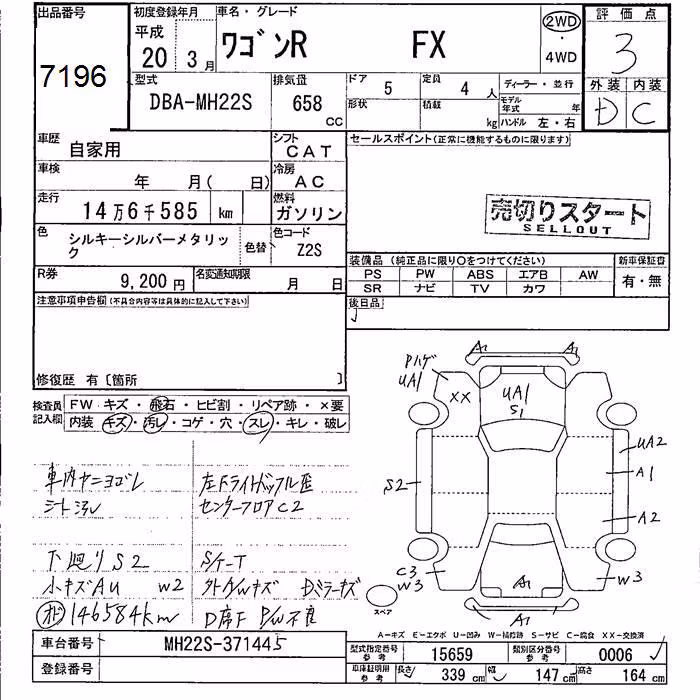 出品番号
7196
初度登録年月
平成
20 3月
車名・グレード
ワゴンR FX
2WD
・
4WD
評価点
3
外装 内装
D C
型式
DBA-MH22S
排気量
658
CC
ドア 5
形状
定員 4 人
積載 kg
ディーラー・並行
モデル年式 年
ハンドル 左・右
車歴
自家用
シフト
CAT
車検
年 月( 日)
冷房
AC
走行
14万6千585 km
燃料
ガソリン
色
シルキーシルバーメタリック
色替
色コード
Z2S
R券
9,200円
名変通知期限
月 日
セールスポイント(正常に機能するものに限ります)
売切りスタート
SELLOUT
装備品(純正品に限り○をつけてください)
PS PW ABS エアB AW
SR ナビ TV カワ
新車保証書
有・無
後日品
注意事項申告欄(不具合内容等は具体的に記入して下さい)
修復歴 有〔箇所 〕
検査員記入欄
FW キズ・飛石・ヒビ割・リペア跡・×要
内装 キズ・汚レ・コゲ・穴・スレ・キレ・破レ
車内ヤニヨゴレ
シート汚レ
左Fライト
センターフロアC2
下廻りS2
小キズAU W2
S/ケーT
Dミラーキズ
146584km
D席F P/W不良
Pハゲ
UA1
XX
A1
A1
UA1
S1
UA2
A1
A2
S2
C3
W3
W3
A1
A1
スペア
A-キズ E-エクボ U-凹み W-補修跡 S-サビ C-腐食 XX-交換済
車台番号
MH22S-371445
登録番号
型式指定番号
参考
15659
類別区分番号
参考
0006
車庫証明用
参考
長さ 339 cm
幅 147 cm
高さ 164 cm